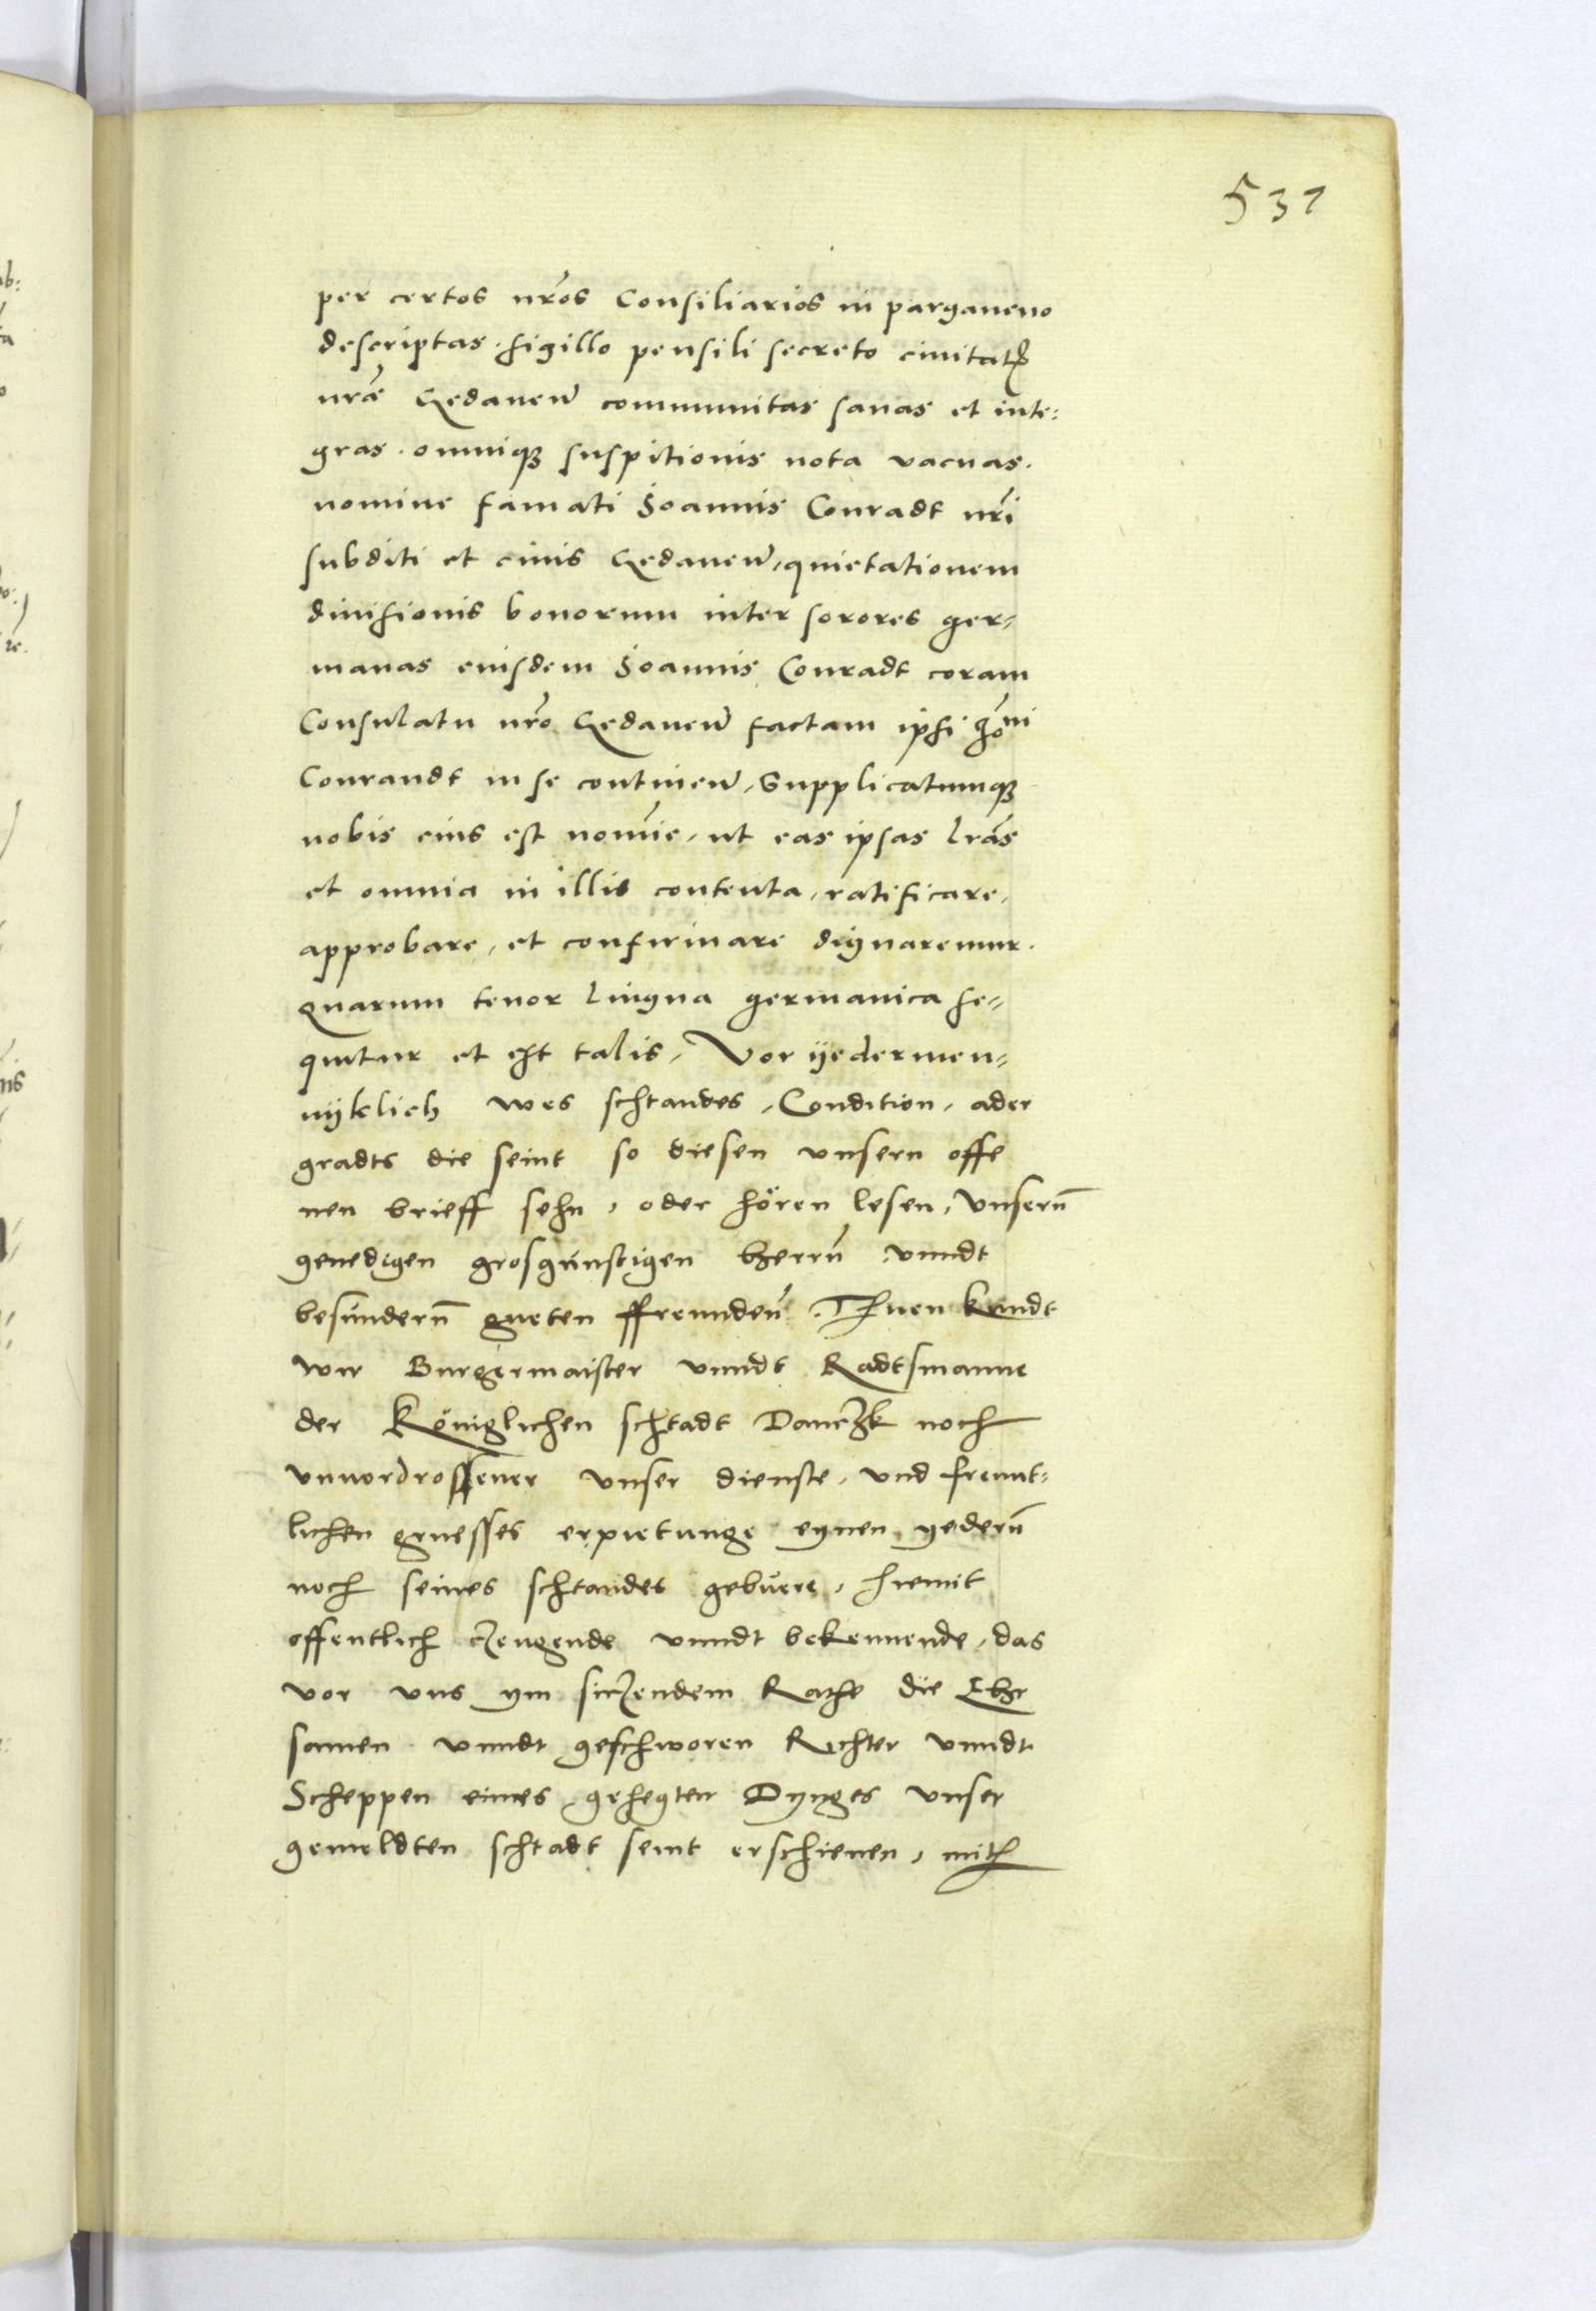 531
per certos nr̃os Consiliarios in parganeno
descriptas. sigillo pensili secreto ciuitatꝭ
nr̃ae Gedaneñ communitas sanas et inte:
gras. omniqꝫ suspitionis nota vacuas.
nomine famati Ioannis Conradt nr̃i
subditi et ciuis Gedaneñ, quietationem
diuisionis bonorum inter sorores ger=
manas eiusdem Ioannis Conradt coram
Consulatu nr̃o Gedaneñ factam ipsi Ioñni
Conrandt in se contineñ, Supplicatumqꝫ
nobis eius est nom̃ie, ut eas ipsas lr̃as
et omnia in illis contenta, ratificare,
approbare, et confirmare dignaremur.
Quarum tenor lingua germanica se=
quitur et est talis, Vor ÿedermen=
nÿklich wes schtandes, Condition, ader
gradts die seint so diesen vnsern offe
nen brieff sehn, oder hören lesen, Vnsern̄
genedigen grosgunstigen hern̄ vnndt
besundern̄ gueten ffreunden̄. Thuen kundt
wir Burgermaister vnndt Radtsmanne
der Königlichen schtadt Danczk noch
vnuordrossener vnser dienste, vnd freunt=
lichen gruesses erpietunge eynen yedern̄
noch seines schtandes gebuere, hiemit
offentlich czeugende vnndt bekennende, das
vor vns ym siczendem Rathe die Ehr
samen vnndt geschworen Richter vnndt
Scheppen eines gehegten Dynges vnser
gemeldten schtadt seint erschienen, mith